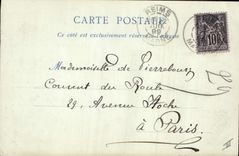 CARTE POSTALE
Ce côté est exclusivement réservé à l'adresse
REIMS
10
Mademoiselle de Pierrebourg
Couvent du Roule
29, Avenue Hoche
à Paris.